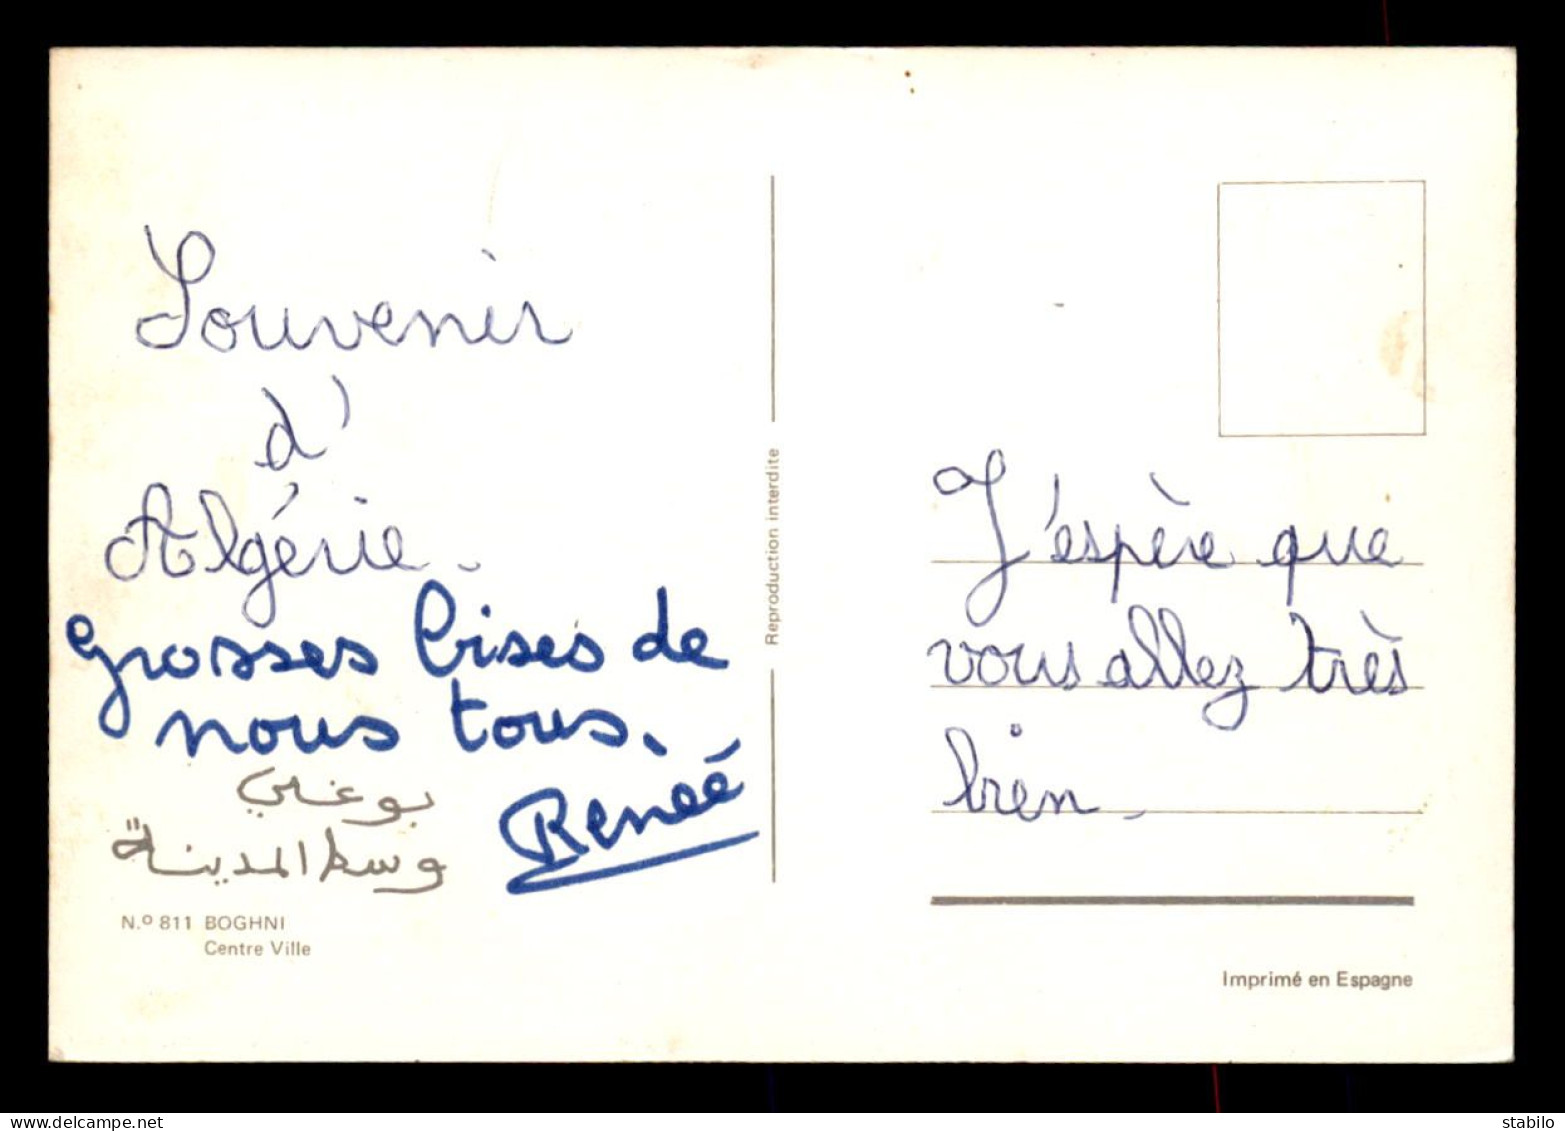 Souvenir
d'
Algérie.
Grosses bises de
nous tous.
Reneé
بوغني
وسط المدينة
N.º 811 BOGHNI
Centre Ville
Reproduction interdite
J'espère que
vous allez très
bien.
Imprimé en Espagne
stabilo